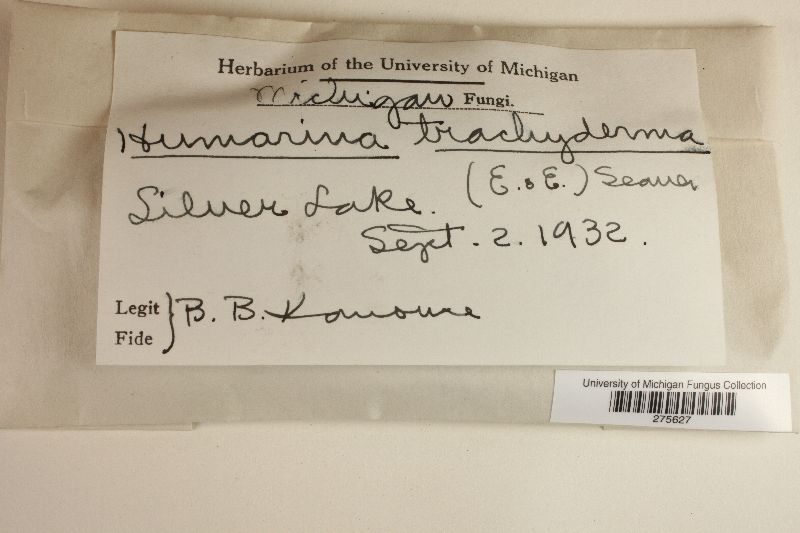 Herbarium of the University of Michigan
Michigan Fungi.
Humarina trachyderma
(E. & E.) Seaver
Silver Lake.
Sept. 2. 1932.
Legit } B. B. Kanouse
Fide
University of Michigan Fungus Collection
275627